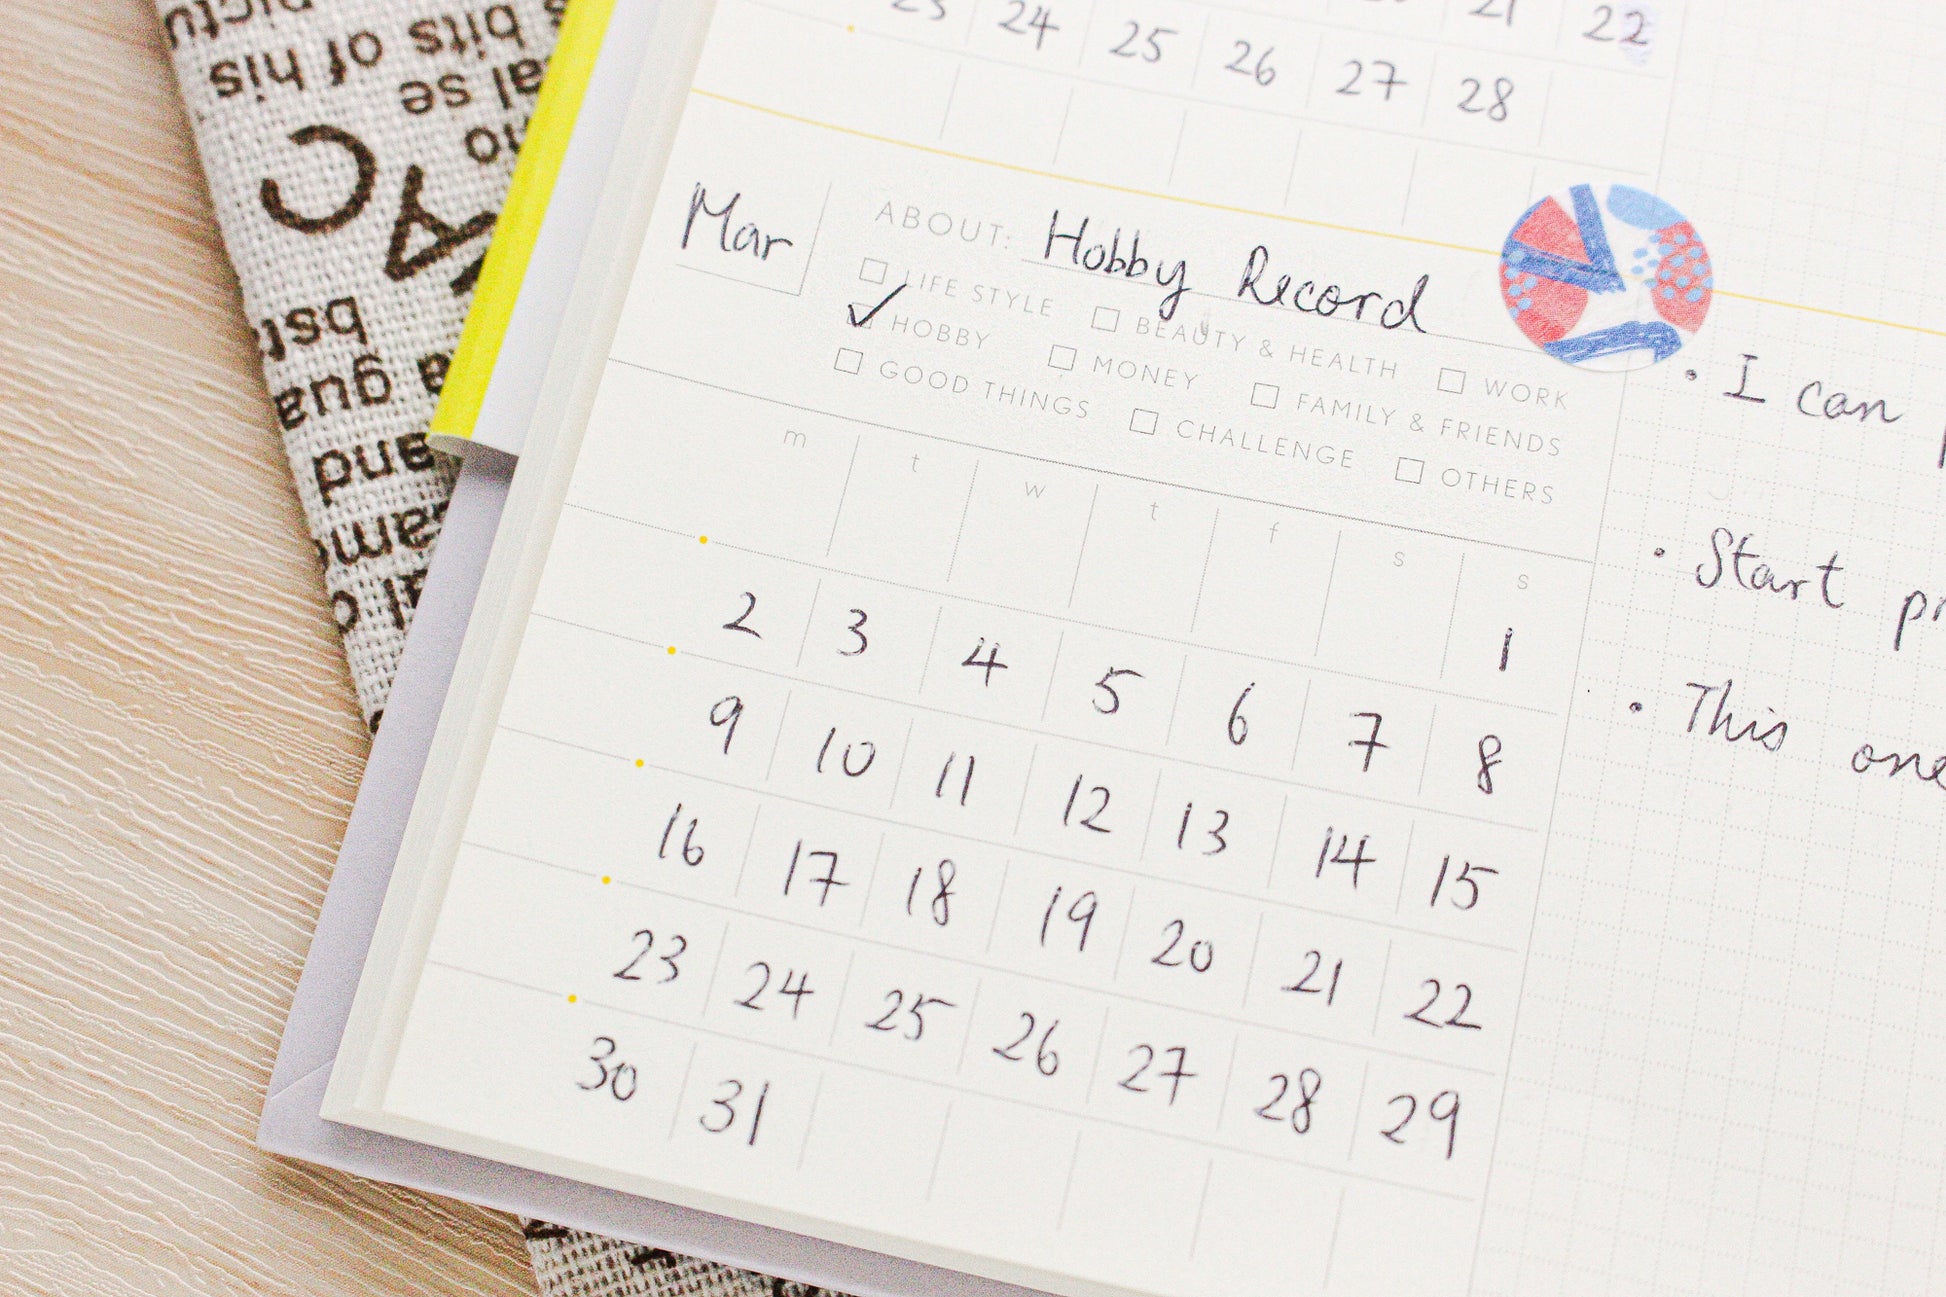 21 22
23 24 25 26 27 28
Mar
ABOUT: Hobby Record
LIFE STYLE BEAUTY & HEALTH WORK
HOBBY MONEY FAMILY & FRIENDS
GOOD THINGS CHALLENGE OTHERS
m t w t f s s
1
2 3 4 5 6 7 8
9 10 11 12 13 14 15
16 17 18 19 20 21 22
23 24 25 26 27 28 29
30 31
• I can
• Start
• This one
bits of his
al se
no
C
A
and